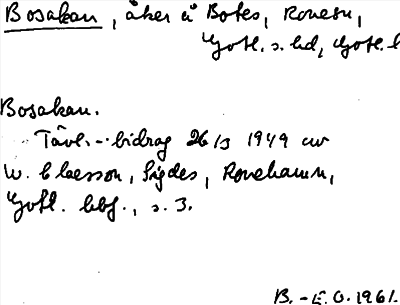 Bosakan, åker å Botes, Ronesn,
Gotl. s. hd, Gotl. l
Bosakan.
Tävl.-bidrag 26/3 1949 av
W. Claesson, Sigdes, Ronehamn,
Gotl. bbf., s. 3.
B.-E.O. 1961.